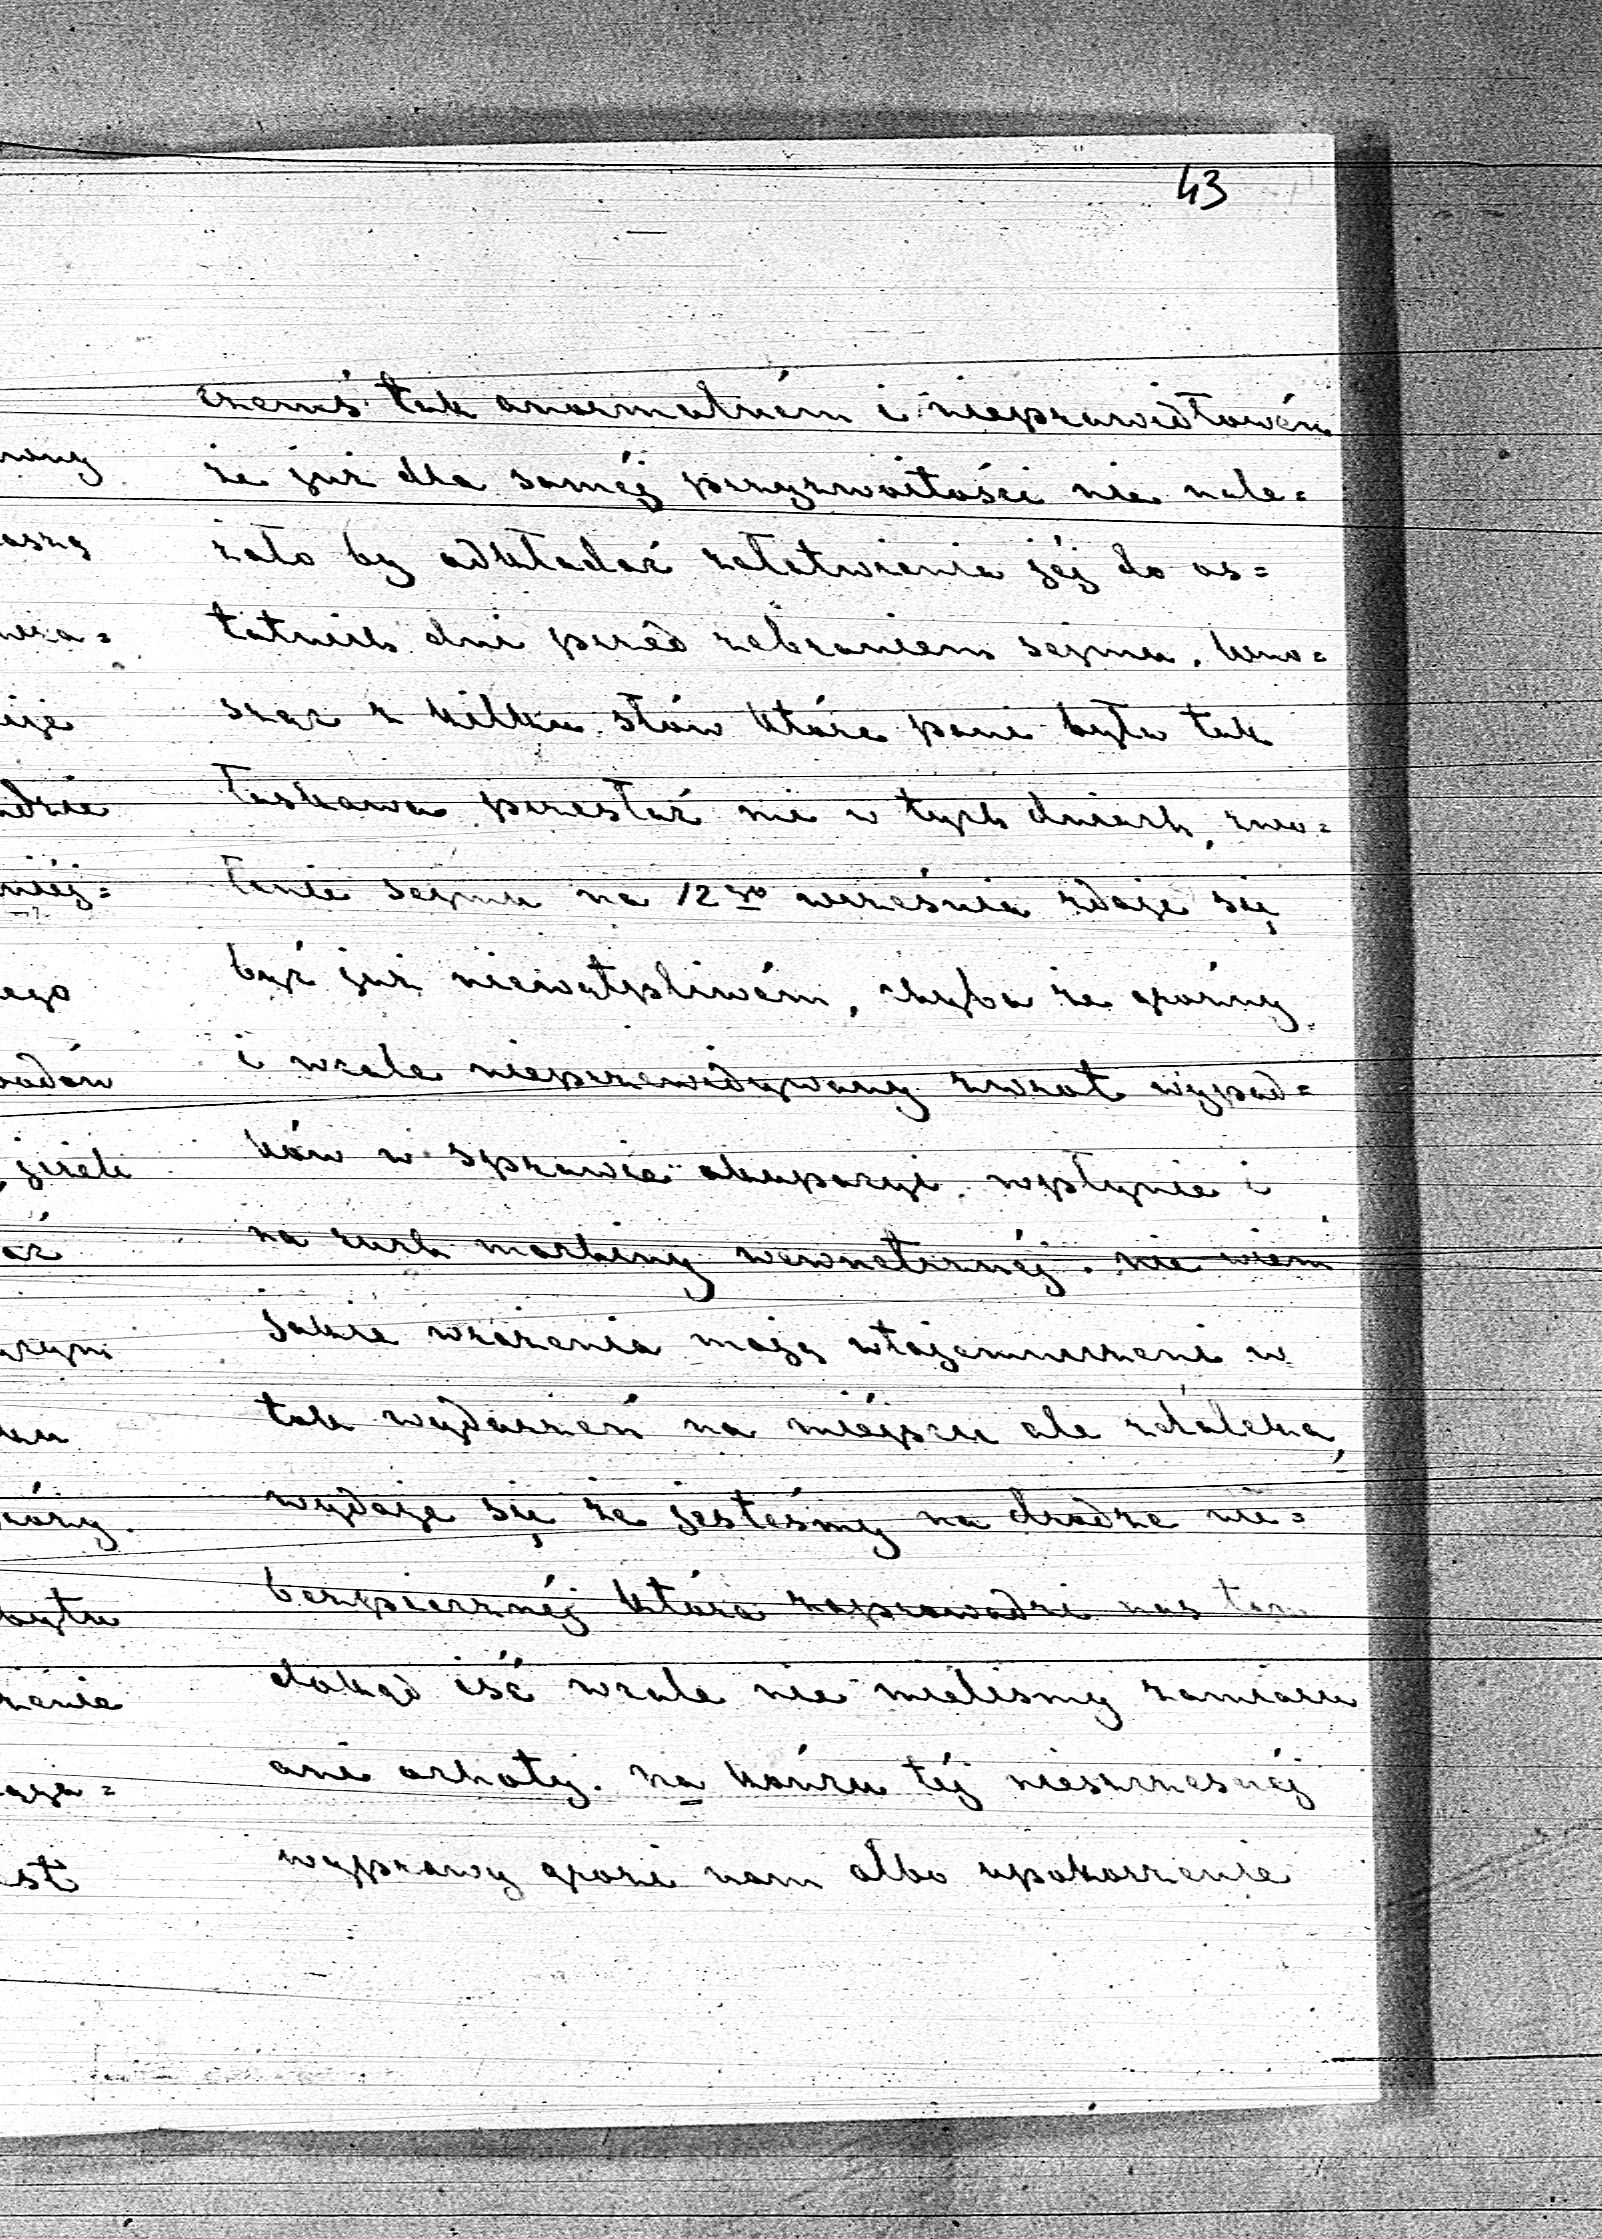 43
czemś tak anormalném i nieprawidłowém
że już dla saméj przyzwoitości nie nale=
żało by odkładać załatwienia jéj do os=
tatnich dni przed zebraniem sejmu. Wno=
sząc z kilku słów które pani była tak
łaskawa przesłać mi w tych dniach, zwo=
łanie sejmu na 12go września zdaje się
być już niewątpliwém, chyba że groźny
i wcale nieprzewidywany zwrot wypad=
ków w sprawie okupacyi, wpłynie i
na ruch machiny wewnetrznéj. nie wiem
jakie wrażenia mają wtajemniczeni w
tok wydarzeń na miéjscu ale zdaleka,
wydaje się że jesteśmy na drodze nie=
bezpiecznéj która zaprowadzi nas tam
dokąd iść wcale nie mieliśmy zamiaru
ani ochoty. na końcu téj nieszczesnéj
wyprawy grozi nam albo upokorzenie
nany
aszą
wza=
ije
idzie
niéj=
ego
wodów
, jeżeli
ać
ku
bytu
żenie
est